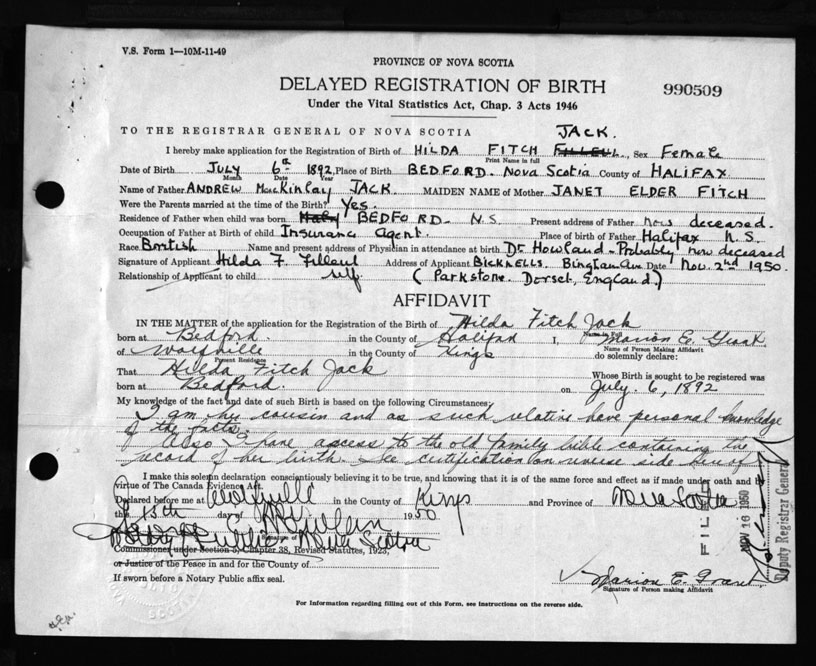 V.S. Form 1—10M-11-49
PROVINCE OF NOVA SCOTIA
DELAYED REGISTRATION OF BIRTH
990509
Under the Vital Statistics Act, Chap. 3 Acts 1946
TO THE REGISTRAR GENERAL OF NOVA SCOTIA JACK.
I hereby make application for the Registration of Birth of HILDA FITCH FILLEUL, Sex Female
Print Name in full
Date of Birth JULY 6th 1892, Place of Birth BEDFORD. Nova Scotia County of HALIFAX
Month Date Year
Name of Father ANDREW MacKinlay JACK. MAIDEN NAME of Mother JANET ELDER FITCH
Were the Parents married at the time of the Birth? Yes.
Residence of Father when child was born BEDFORD- N.S. Present address of Father now deceased.
Occupation of Father at Birth of child Insurance Agent. Place of birth of Father Halifax N.S.
Race British Name and present address of Physician in attendance at birth Dr Howland-Probably now deceased
Signature of Applicant Hilda F. Filleul Address of Applicant BICKNELLS. Bingham Ave Date Nov. 2nd 1950.
Relationship of Applicant to child self. (Parkstone. Dorset, England.)
AFFIDAVIT
IN THE MATTER of the application for the Registration of the Birth of Hilda Fitch Jack
Name in Full
born at Bedford. in the County of Halifax I, Marion E. Grant
Name of Person Making Affidavit
of Wolfville in the County of Kings do solemnly declare:
Present Residence
That Hilda Fitch Jack Whose Birth is sought to be registered was
born at Bedford. on July. 6, 1892
My knowledge of the fact and date of such Birth is based on the following Circumstances:
I am her cousin and as such relative have personal knowledge
of the facts.
Also I have access to the old family bible containing the
record of her birth. See certification on reverse side hereof
I make this solemn declaration conscientiously believing it to be true, and knowing that it is of the same force and effect as if made under oath and by
virtue of The Canada Evidence Act.
Declared before me at Wolfville in the County of Kings and Province of Nova Scotia
this 13th day of Nov. 1950
Signature of
Notary Public Nova Scotia
Commissioner under Section 5, Chapter 38, Revised Statutes, 1923,
or Justice of the Peace in and for the County of
If sworn before a Notary Public affix seal.
Marion E. Grant
Signature of Person making Affidavit
For Information regarding filling out of this Form, see instructions on the reverse side.
FILED
NOV 16 1950
Deputy Registrar General